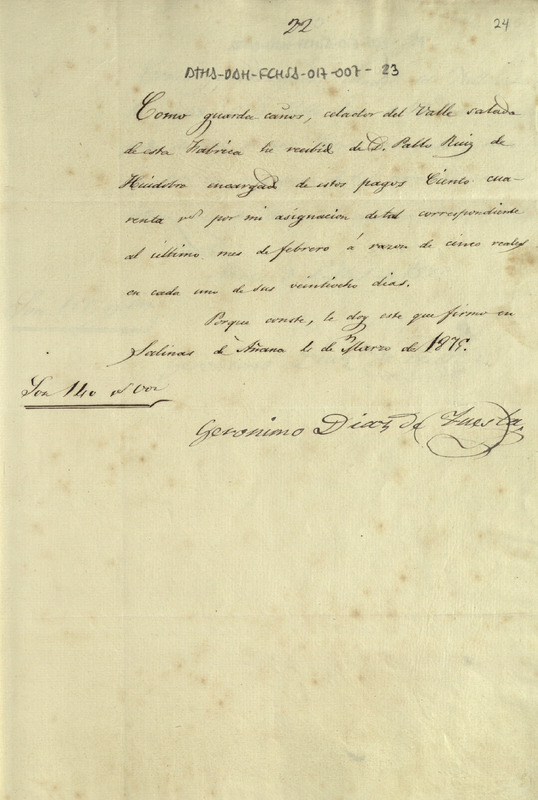 22
24
ATHA-DAH-FCHSA-017-007-23
Como guarda caños, celador del Valle salado
de esta Fabrica he recibido de D. Pablo Ruiz de
Huidobro encargado de estos pagos Ciento cua-
renta rs por mi asignacion de tal correspondiente
al último mes de febrero á razon de cinco reales
en cada uno de sus veintiocho dias.
Porque conste, le doy este que firmo en
Salinas de Añana 1º de Marzo de 1875.
Son 140 rs von
Geronimo Diaz de Tuesta